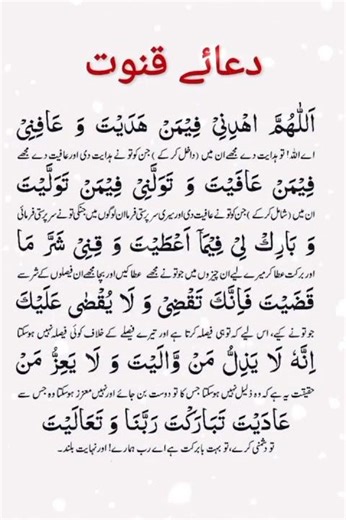 دعائے قنوت
اَللّٰهُمَّ اهْدِنِیْ فِیْمَنْ هَدَیْتَ وَ عَافِنِیْ
اے اللہ! تو ہدایت دے مجھے ان میں (داخل کر کے) جن کو تو نے ہدایت دی اور عافیت دے مجھے
فِیْمَنْ عَافَیْتَ وَ تَوَلَّنِیْ فِیْمَنْ تَوَلَّیْتَ
ان میں (شامل کر کے) جن کو تو نے عافیت دی اور میری سرپرستی فرما ان لوگوں میں جنکی تو نے سرپرستی فرمائی
وَ بَارِكْ لِیْ فِیْمَآ اَعْطَیْتَ وَ قِنِیْ شَرَّ مَا
اور برکت عطا کر میرے لیے ان چیزوں میں جو تو نے مجھے عطا کیں اور بچا مجھے ان فیصلوں کے شر سے
قَضَیْتَ فَاِنَّكَ تَقْضِیْ وَ لَا یُقْضٰی عَلَیْكَ
جو تو نے کیے، اس لیے کہ تو ہی فیصلہ کرتا ہے اور تیرے فیصلے کے خلاف کوئی فیصلہ نہیں ہو سکتا
اِنَّهٗ لَا یَذِلُّ مَنْ وَّالَیْتَ وَ لَا یَعِزُّ مَنْ
حقیقت یہ ہے کہ وہ ذلیل نہیں ہو سکتا جس کا تو دوست بن جائے اور نہیں معزز ہو سکتا وہ جس سے
عَادَیْتَ تَبَارَكْتَ رَبَّنَا وَ تَعَالَیْتَ
تو دشمنی کرے، تو بہت بابرکت ہے اے رب ہمارے! اور نہایت بلند۔